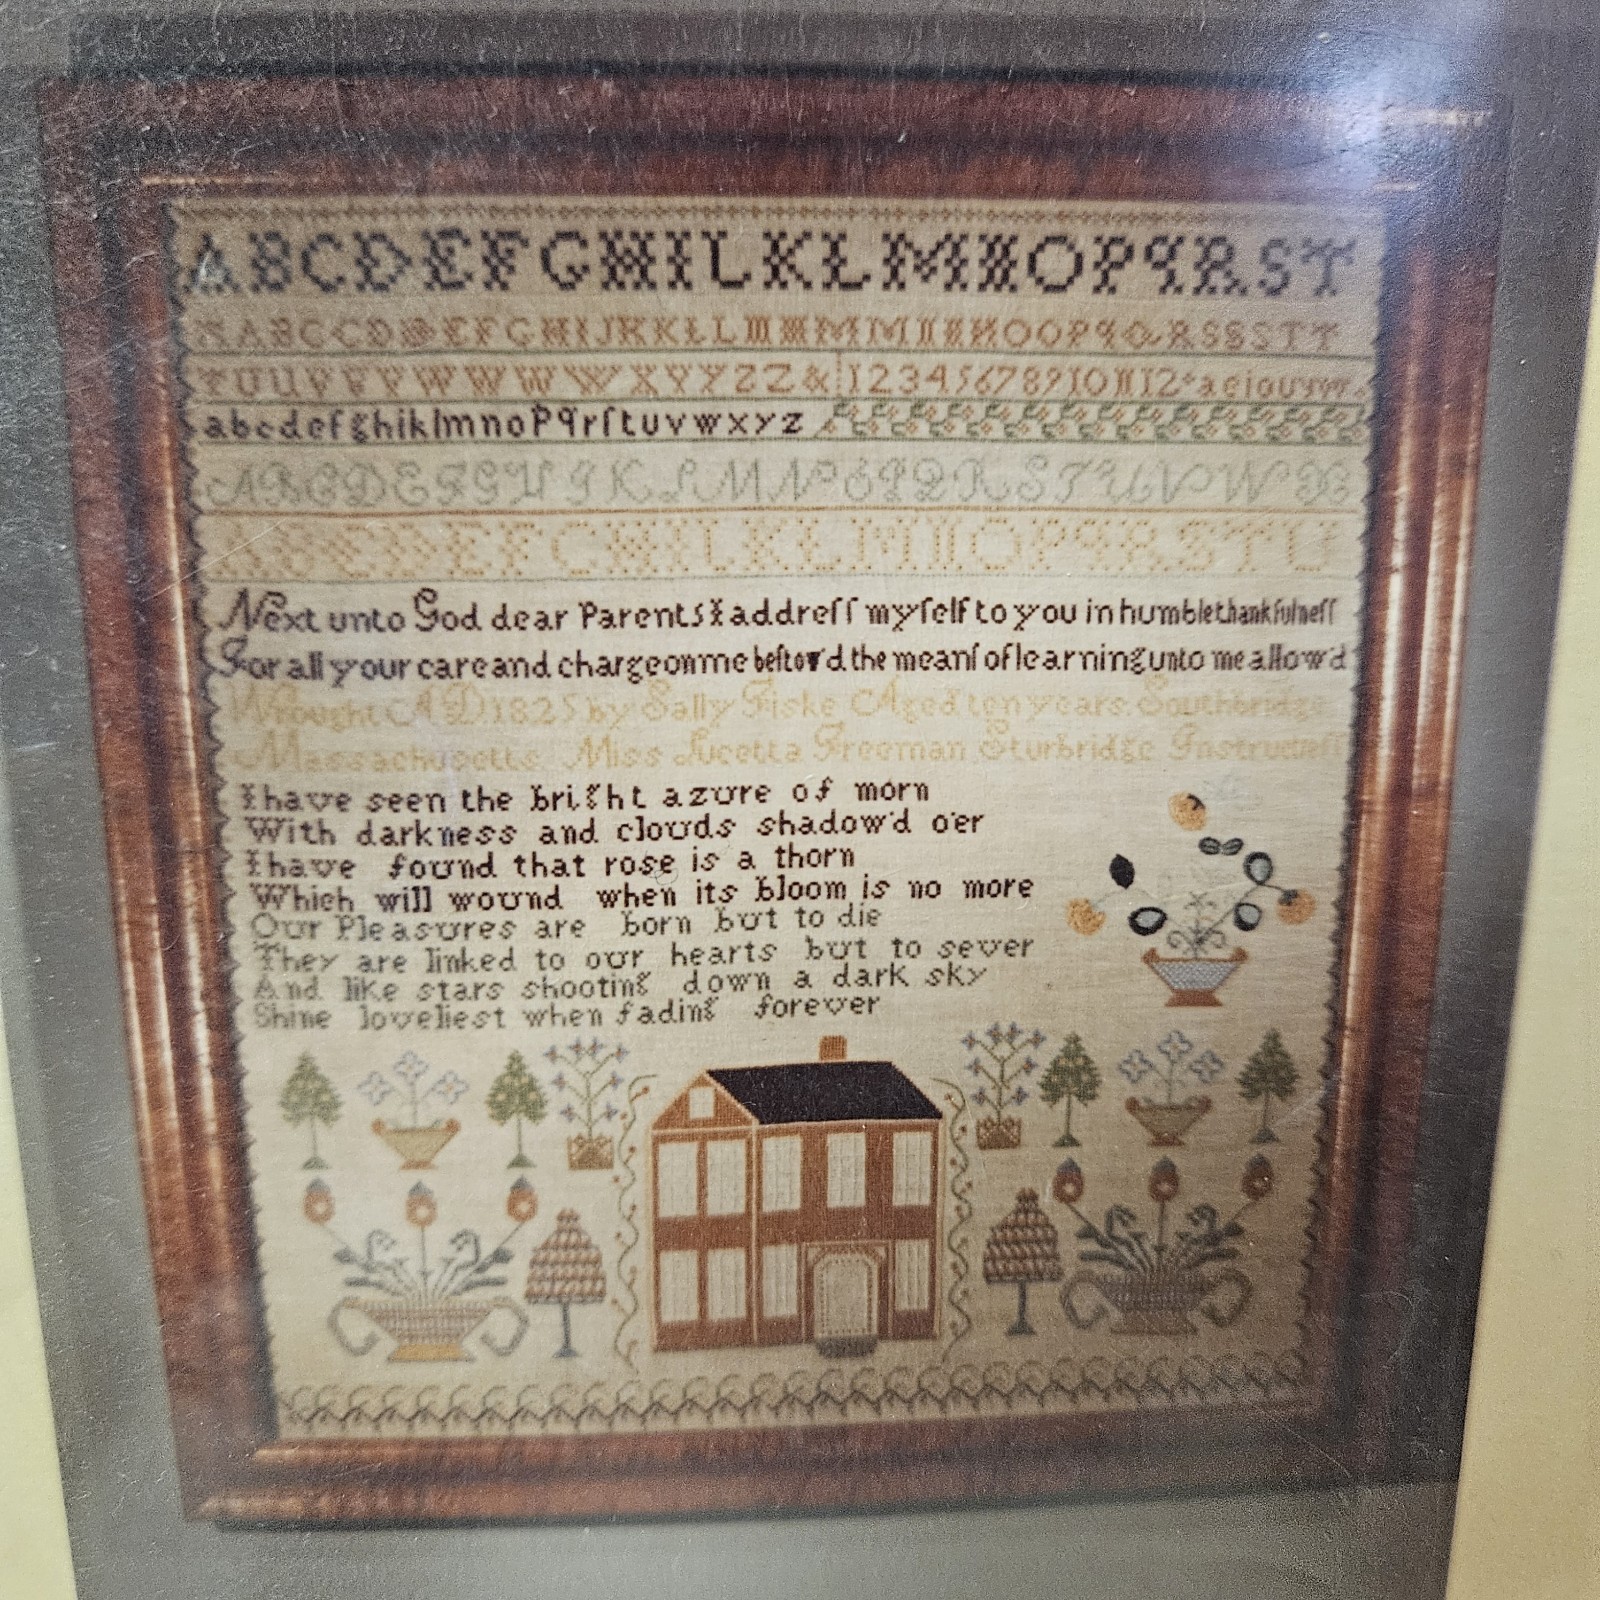 ABCDEFGHILKLMNOPqRST
abcdefghiklmnopqrſtuvwxyz
ABCDEFGHIKLMNOPQRSTUVWX
ABCDEFGHILKLMNOPqRSTU
Next unto God dear Parents I addreſſ myſelf to you in humble thankfulneſſ
For all your care and charge on me beſtow'd the meanſ of learning unto me allow'd
Wrought AD 1825 by Sally Fiske Aged ten years. Southbridge
Massachusetts. Miss Lucetta Freeman Sturbridge Instructreſſ
I have seen the bright azure of morn
With darkness and clouds shadow'd o'er
I have found that rose is a thorn
Which will wound when its bloom is no more
Our Pleasures are born but to die
They are linked to our hearts but to sever
And like stars shooting down a dark sky
Shine loveliest when fading forever